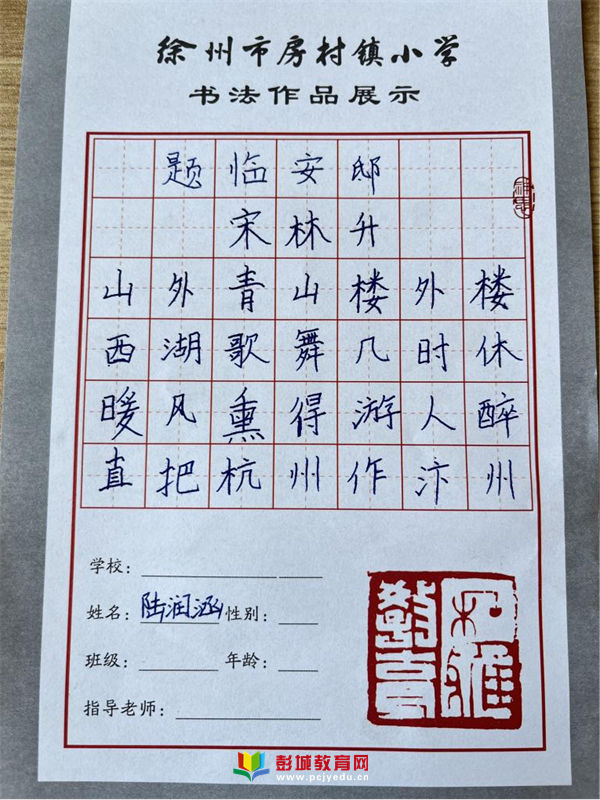 徐州市房村镇小学
书法作品展示
题临安邸
宋林升
山外青山楼外楼
西湖歌舞几时休
暖风熏得游人醉
直把杭州作汴州
学校：
姓名：陆润涵 性别：
班级： 年龄：
指导老师：
彭城教育网
www.pcjyedu.cn